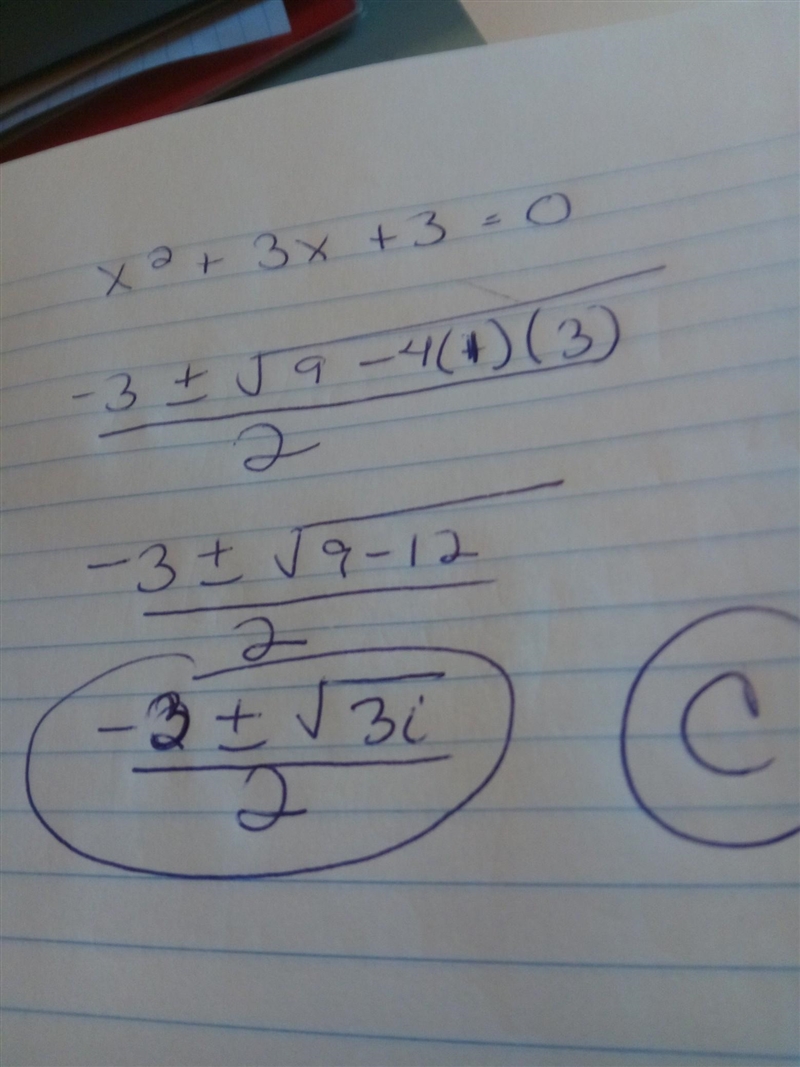 x² + 3x + 3 = 0
-3 ± √9 - 4(1)(3)
2
-3 ± √9 - 12
2
-3 ± √3i
2
C